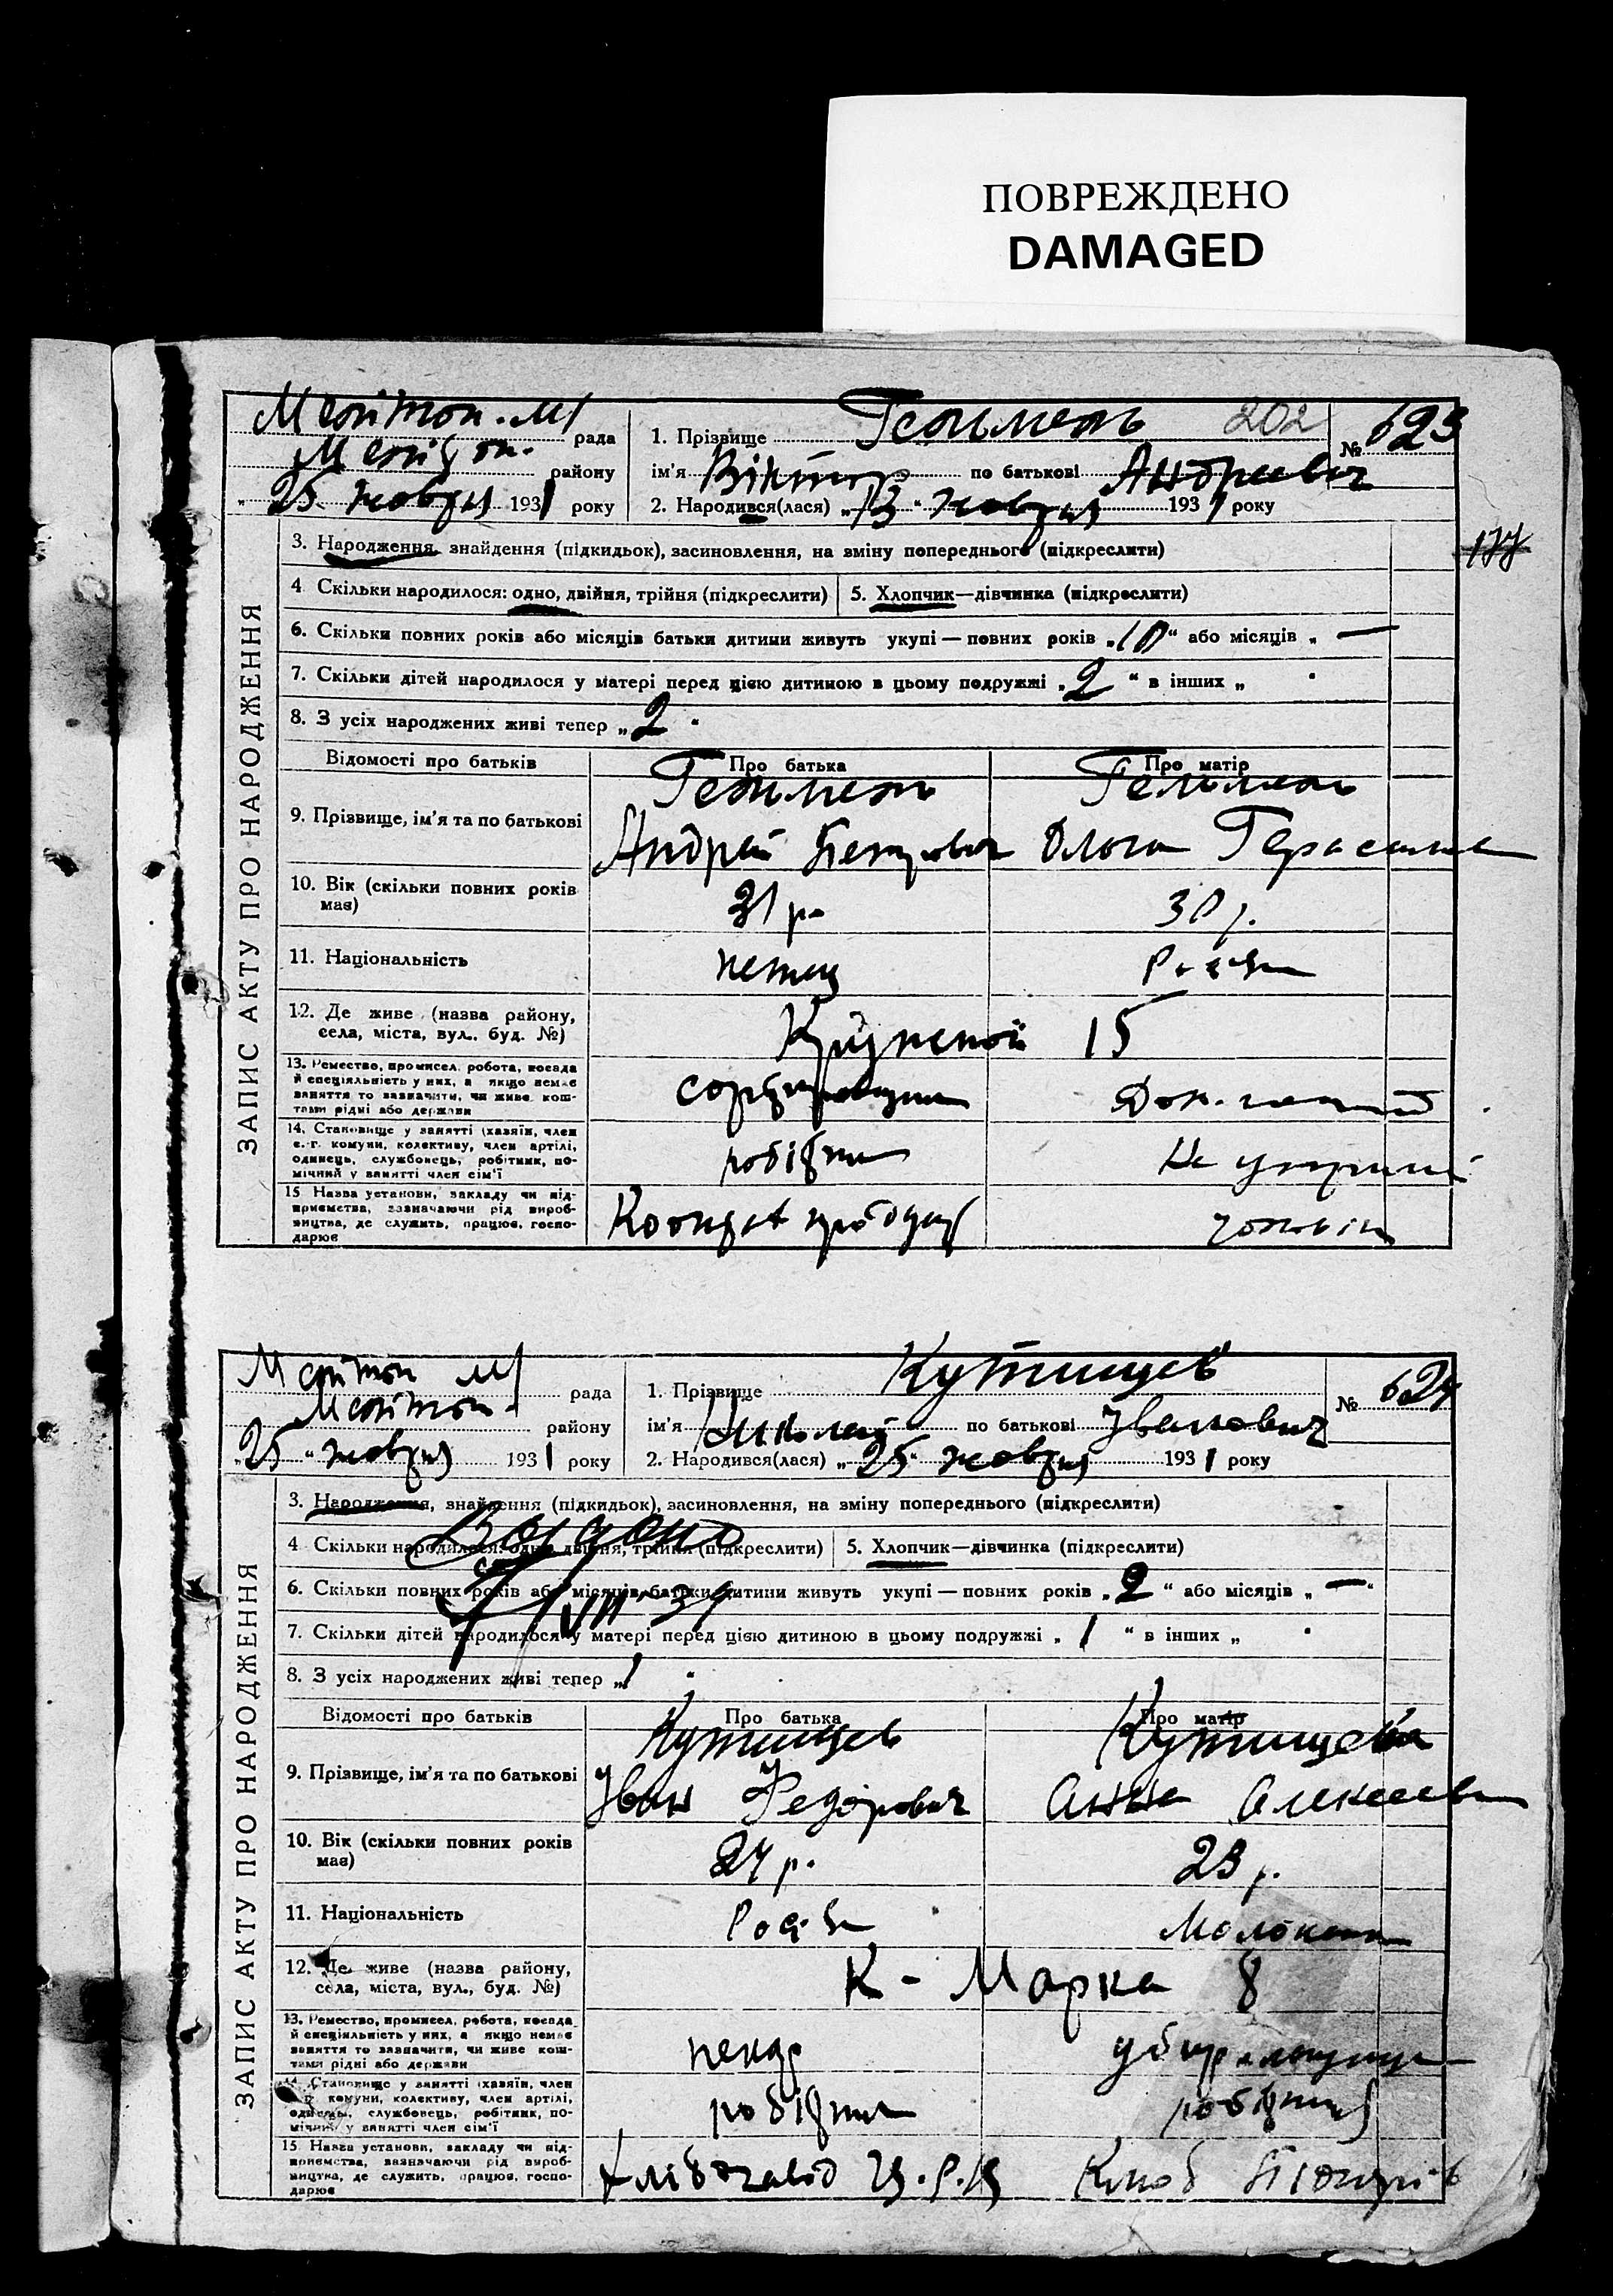 ПОВРЕЖДЕНО
DAMAGED
рада
району
25 жовтня 1931 року
1. Прізвище Гельмель 202
№ 623
ім'я Віктор по батькові Андреевич
2. Народився(лася) „13“ жовтня 1931 року
177
ЗАПИС АКТУ ПРО НАРОДЖЕННЯ
3. Народження, знайдення (підкидьок), засиновлення, на зміну попереднього (підкреслити)
4 Скільки народилося: одно, двійня, трійня (підкреслити)
5. Хлопчик—дівчинка (підкреслити)
6. Скільки повних років або місяців батьки дитини живуть укупі — повних років „10“ або місяців „ —
7. Скільки дітей народилося у матері перед цією дитиною в цьому подружжі „2“ в інших „
8. З усіх народжених живі тепер „2
Відомості про батьків
Про батька
Про матір
9. Прізвище, ім'я та по батькові
Гельмель
Андрей Петрович
Гельмель
Ольга Герасим
10. Вік (скільки повних років має)
31 р.
30 р.
11. Національність
немец
12. Де живе (назва району, села, міста, вул., буд. №)
15
13. Ремество, промисел, робота, посада й спеціяльність у них, а якщо немає заняття то зазначити, чи живе коштами рідні або держави
Дом.
14. Становище у занятті (хазяїн, член с.-г. комуни, колективу, член артілі, одинець, службовець, робітник, помічний у занятті член сім'ї
робітник
15 Назва установи, закладу чи підприємства, зазначаючи рід виробництва, де служить, працює, господарює
чоловік
рада
району
25 жовтня 1931 року
1. Прізвище Кутищев
№ 624
ім'я Миколай по батькові Іванович
2. Народився(лася) „25“ жовтня 1931 року
ЗАПИС АКТУ ПРО НАРОДЖЕННЯ
3. Народження, знайдення (підкидьок), засиновлення, на зміну попереднього (підкреслити)
4 Скільки народилося: одно, двійня, трійня (підкреслити)
5. Хлопчик—дівчинка (підкреслити)
6. Скільки повних років або місяців батьки дитини живуть укупі — повних років „2“ або місяців „—“
7. Скільки дітей народилося у матері перед цією дитиною в цьому подружжі „1“ в інших „
8. З усіх народжених живі тепер „1
Відомості про батьків
Про батька
Про матір
9. Прізвище, ім'я та по батькові
Кутищев
Іван Федорович
Кутищева
Анна Алексеев
10. Вік (скільки повних років має)
24 р.
23 р.
11. Національність
12. Де живе (назва району, села, міста, вул., буд. №)
К - Маркса 8
13. Ремество, промисел, робота, посада й спеціяльність у них, а якщо немає заняття то зазначити, чи живе коштами рідні або держави
пекар
14. Становище у занятті (хазяїн, член с.-г. комуни, колективу, член артілі, одинець, службовець, робітник, помічний у занятті член сім'ї
робітник
робітниця
15 Назва установи, закладу чи підприємства, зазначаючи рід виробництва, де служить, працює, господарює
Хлібозавод
Клюб